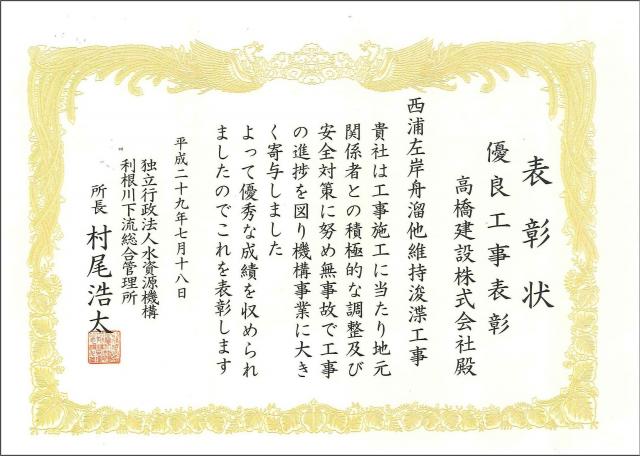 表彰状
優良工事表彰
高橋建設株式会社殿
西浦左岸舟溜他維持浚渫工事
貴社は工事施工に当たり地元
関係者との積極的な調整及び
安全対策に努め無事故で工事
の進捗を図り機構事業に大き
く寄与しました
よって優秀な成績を収められ
ましたのでこれを表彰します
平成二十九年七月十八日
独立行政法人水資源機構
利根川下流総合管理所
所長 村尾浩太